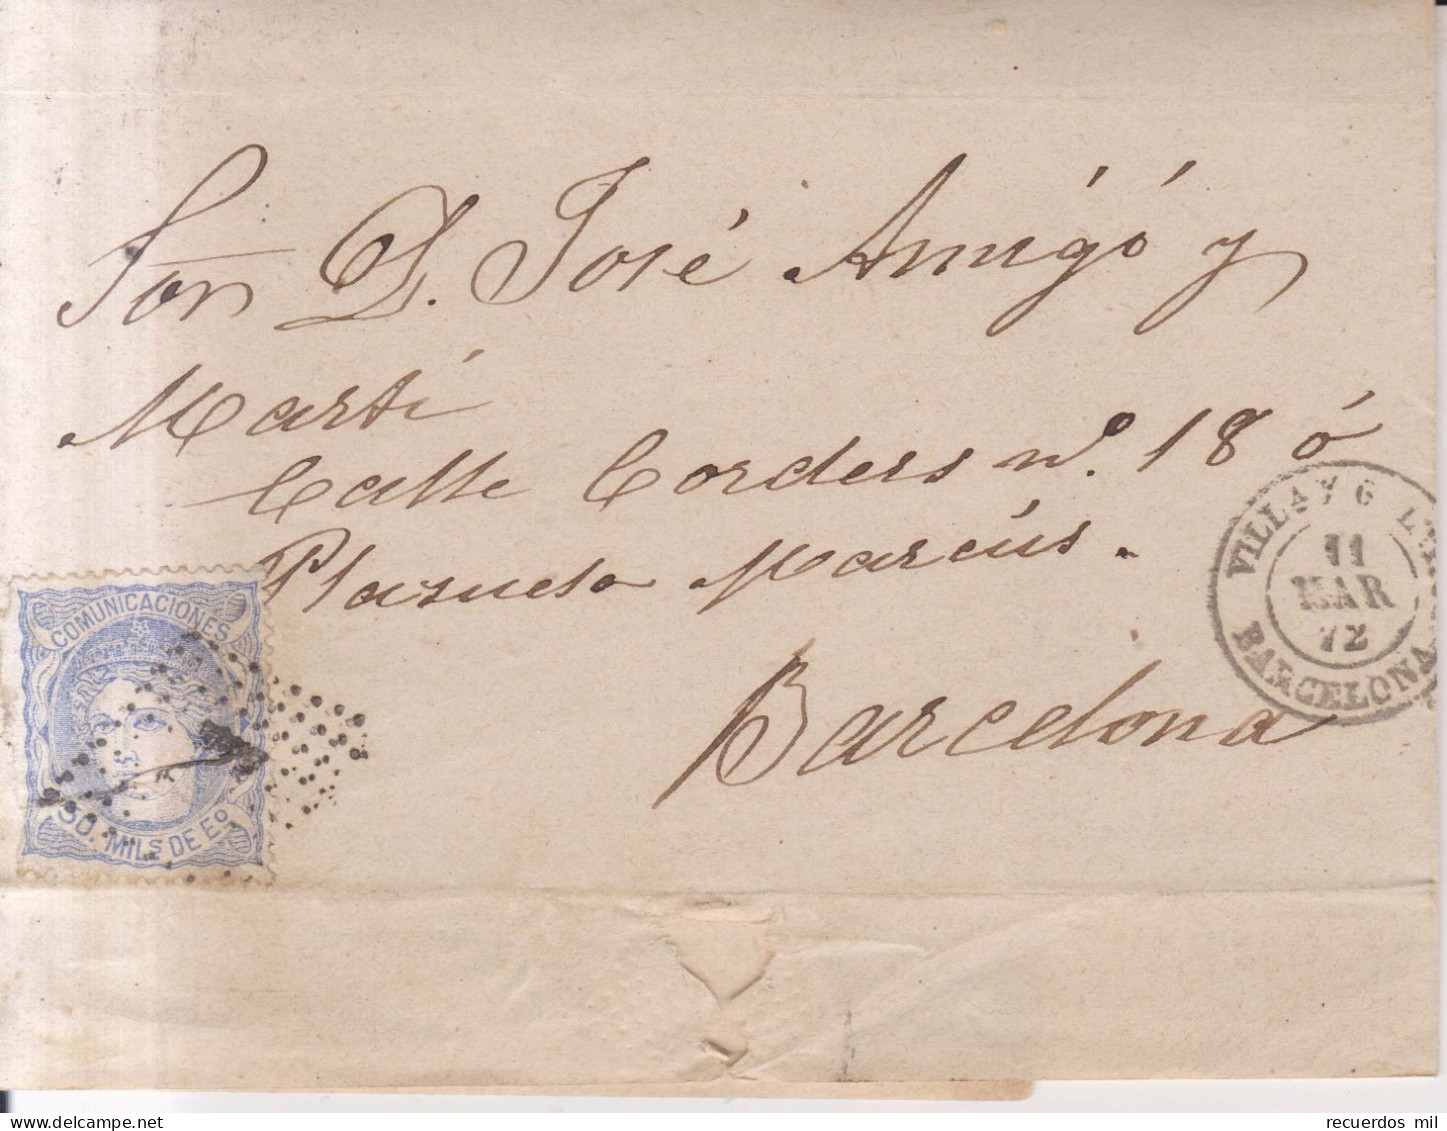 Sor D. José Amigó y
Martí
Calle Corders nº. 18 ó
Plazuela Marcús.
Barcelona
VILLA Y G
11
MAR
72
BARCELONA
COMUNICACIONES
50. MILS DE Eº
recuerdos mil